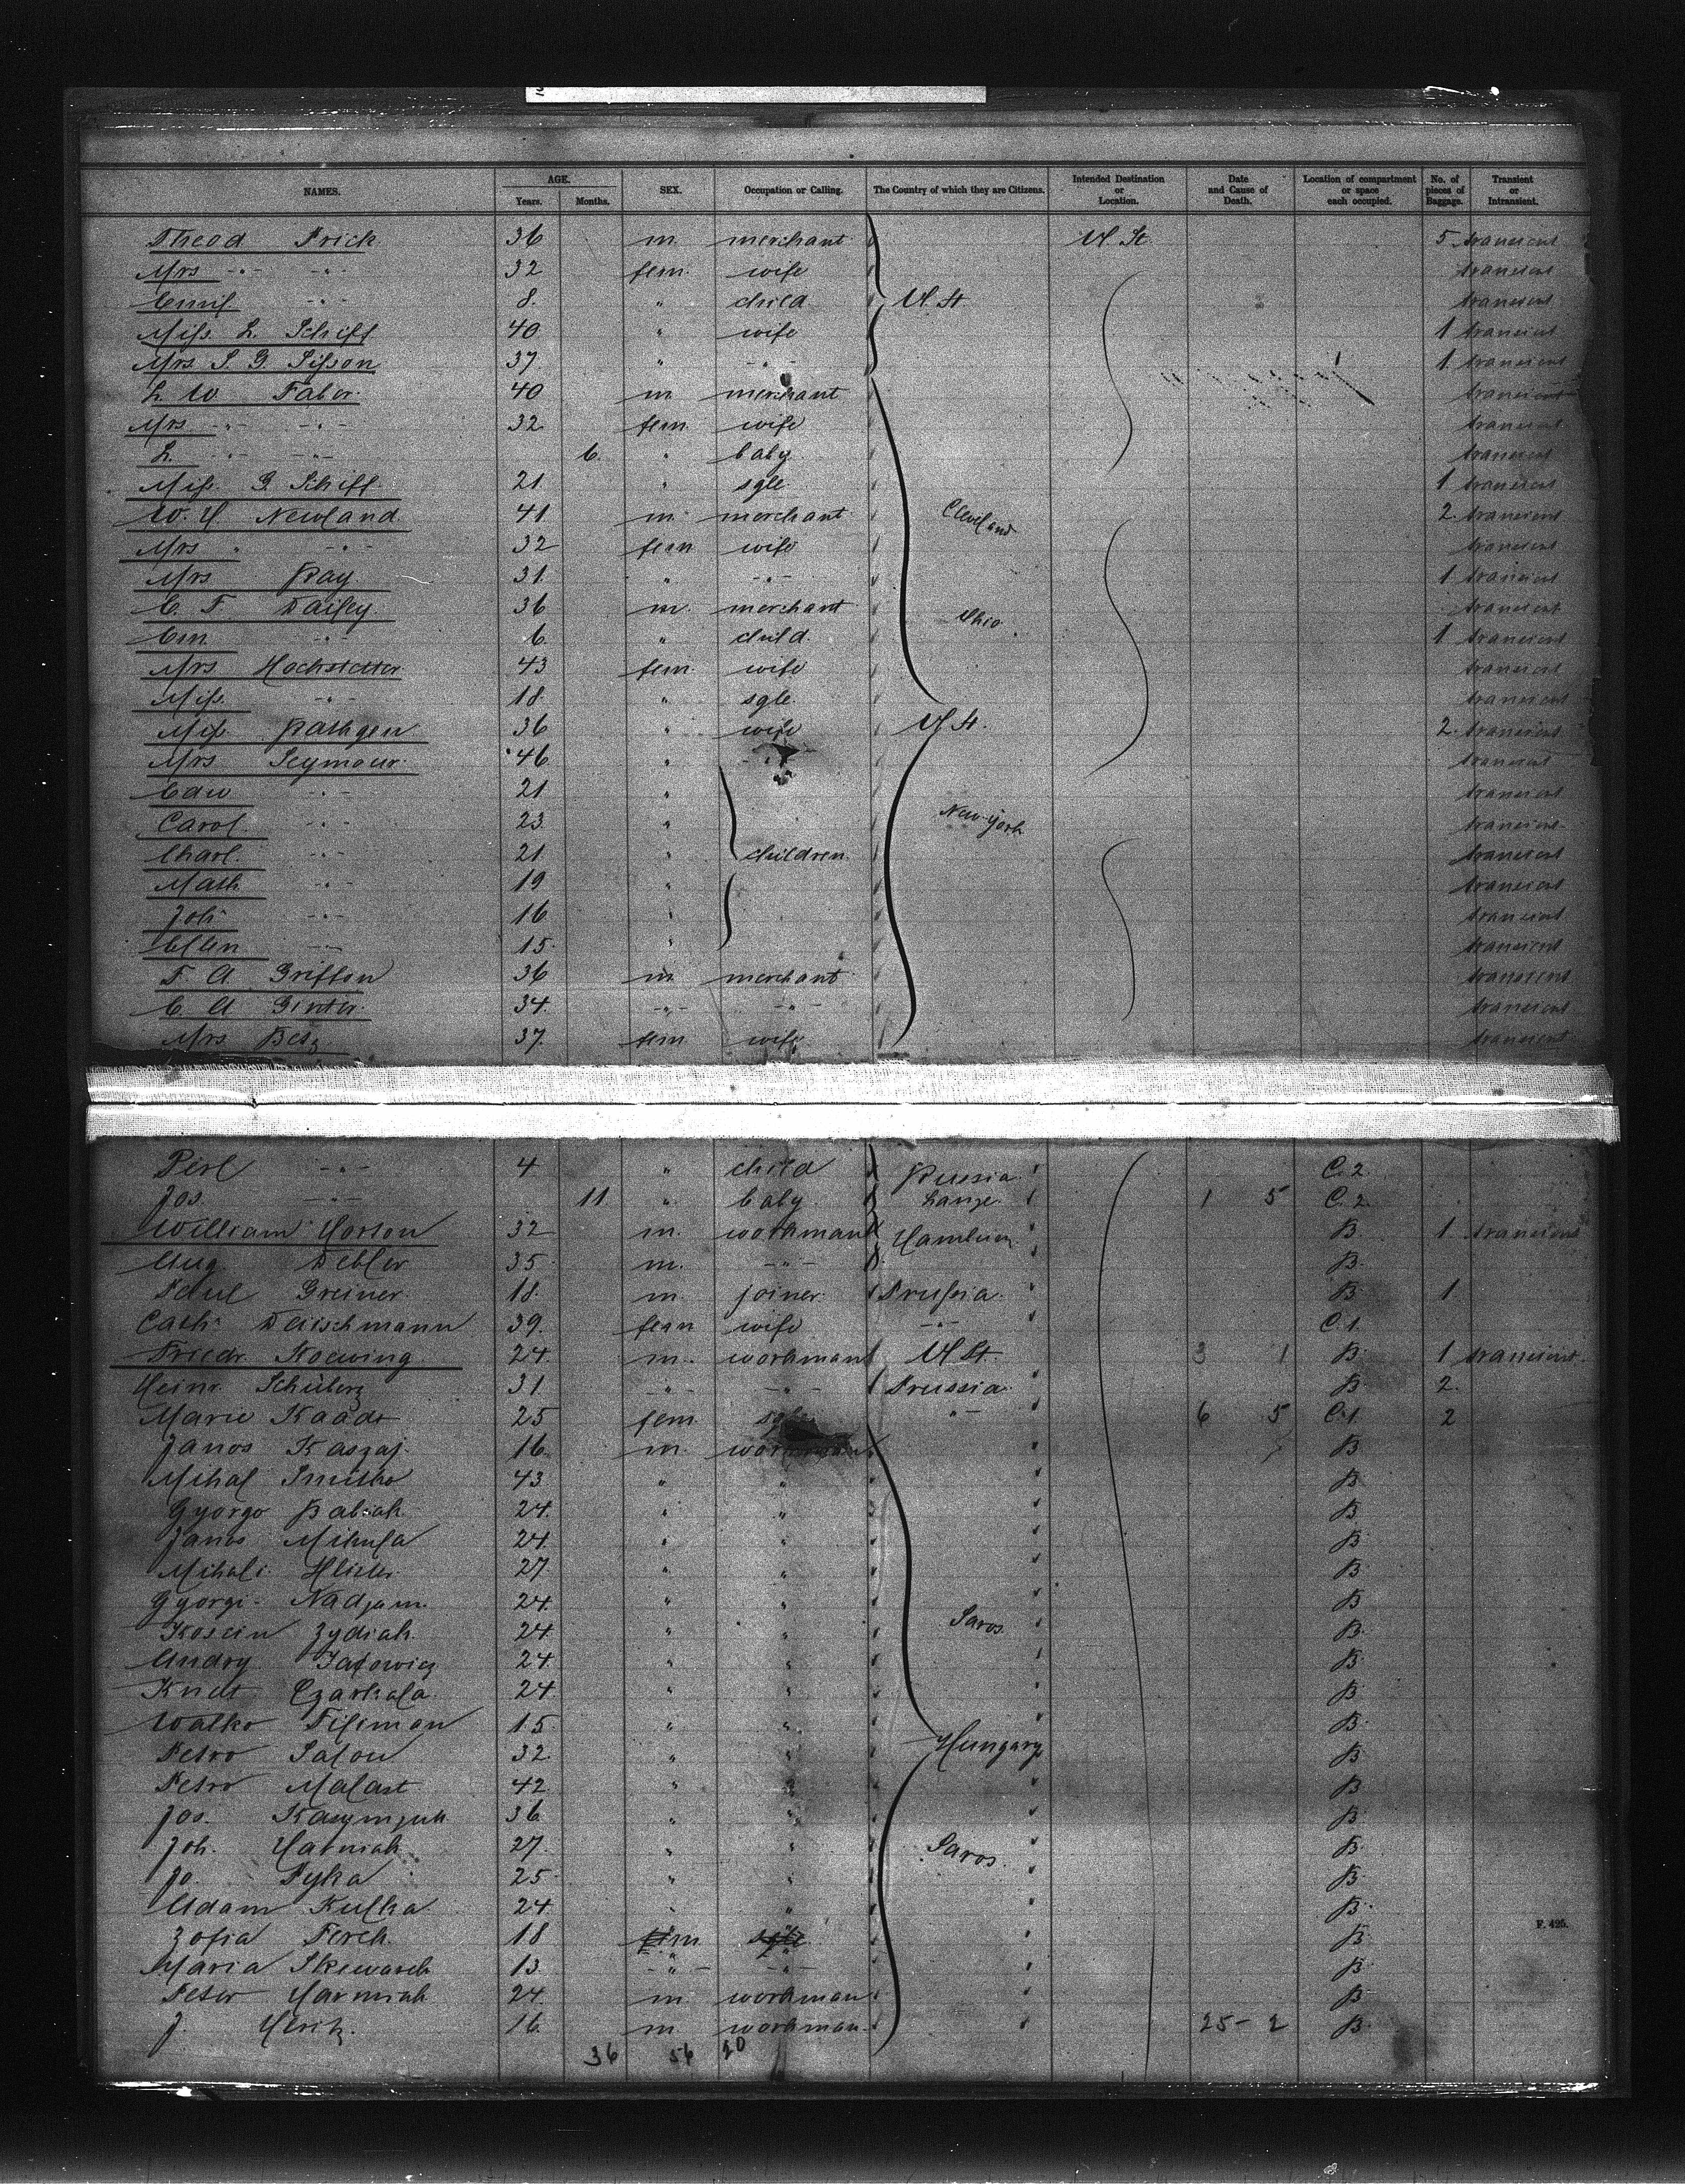 NAMES. AGE. Years. Months. SEX. Occupation or Calling. The Country of which they are Citizens. Intended Destination or Location. Date and Cause of Death. Location of compartment or space each occupied. No. of pieces of Baggage. Transient or Intransient.
Theod Frick 36 m merchant U St 5 transient
Mrs -"- -"- 32 fem. wife transient
Emil -"- 8. " child U. St transient
Miss. L. Schiff 40 " wife 1 transient
Mrs S. G. Sisson 37 " -"- 1 transient
L. W Faber. 40 m merchant transient
Mrs -"- -"- 32 fem wife transient
L. -"- -"- 6. " baby transient
Miss. G. Schiff 21 " sgle 1 transient
W. H Newland 41 m merchant Cleveland 2. transient
Mrs " -"- 32 fem wife transient
Mrs Ray 31. " -"- 1 transient
C. F. Daisey 36 m. merchant Ohio transient
Em " 6 " child. 1 transient
Mrs Hochstetter 43 fem. wife transient
Miss. -"- 18. " sgle. transient
Miss Rathgen 36 " wife U St. 2. transient
Mrs Seymour 46 " -"- transient
Edw -"- 21 " transient
Carol. -"- 23 " New-York transient
Charl. -"- 21 " children transient
Math -"- 19 " transient
Joh -"- 16 " transient
Ellen -"- 15. " transient
F A Griffon 36 m merchant transient
C. A Ginter. 34. -"- -"- transient
Mrs Betz 37. fem wife transient
Perl -"- 4 " child Russia C. 2.
Jos. -"- 11 " baby 1 5 C. 2.
William Horton 32 m. workman Hamburg B. 1 transient
Aug Debler 35 m. -"- B.
Paul Greiner. 18. m joiner. Prussia. B 1
Cath. Deischmann 39. fem wife -"- C. 1.
Friedr Koewing 24. m. workman U St. 3 1 B. 1 transient.
Heinr. Schüberg 31. -"- -"- Prussia B 2.
Marie Kaads 25 fem sgle " 6 5 C. 1. 2
Janos Kaszaj. 16 m. workman B
Mihal Smitko 43 " " B
Gyorgo Babiak 24. " " B
Janos Mikula 24. " " B
Mihali 27. " " B
Gyorgi 24. " " B
Zydiak. 24. " " Saros. B.
Andry 24. " " B.
Czarkala. 24. " " B
Watko Fisiman 15. " " B.
Petro Salou 32. " " Hungary B
Petro Malast 42 " " B
Jos. 36 " " B
Joh. Harniak. 27. " " Saros. B
Jo. Fyka 25 " " B
Adam Kulka 24 " " B.
Zofia Ferch. 18 fem sgle B
Maria 13 -"- -"- B
Peter Harniak 24. m workman B
J. 16. m workman. 25- 2 B
36 56 20
F. 425.